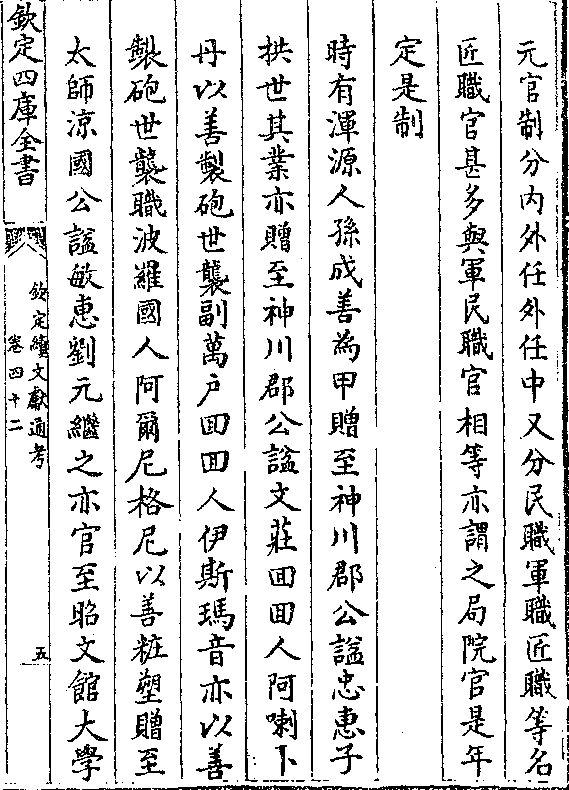 元官制分内外任外任中又分民職軍職匠職等名
匠職官甚多與軍民職官相等亦謂之局院官是年
定是制
時有渾源人孫成善為甲贈至神川郡公諡忠惠子
拱世其業亦贈至神川郡公諡文莊回回人阿喇卜
丹以善製砲世襲副萬户回回人伊斯瑪音亦以善
製砲世襲職波羅國人阿爾尼格尼以善粧塑贈至
太師涼國公諡敏惠劉元繼之亦官至昭文館大學
欽定四庫全書
欽定續文獻通考
卷四十二
五